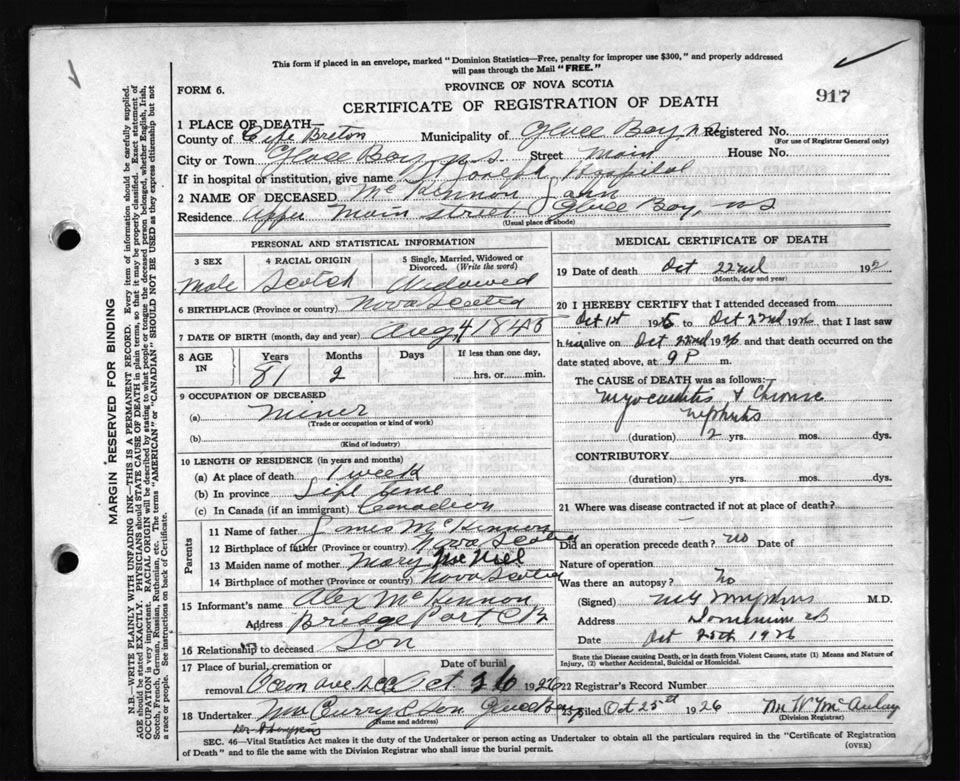 This form if placed in an envelope, marked "Dominion Statistics—Free, penalty for improper use $300," and properly addressed
will pass through the Mail "FREE."
FORM 6.
PROVINCE OF NOVA SCOTIA
CERTIFICATE OF REGISTRATION OF DEATH
917
1 PLACE OF DEATH—
County of Cape Breton Municipality of Glace Bay N S Registered No.
(For use of Registrar General only)
City or Town Glace Bay N. S Street Main House No.
If in hospital or institution, give name St Joseph Hospital
2 NAME OF DECEASED McKennon
Residence Main Street Glace Bay, NS
(Usual place of abode)
PERSONAL AND STATISTICAL INFORMATION
3 SEX 4 RACIAL ORIGIN 5 Single, Married, Widowed or Divorced. (Write the word)
Male Scotch Widowed
6 BIRTHPLACE (Province or country) Nova Scotia
7 DATE OF BIRTH (month, day and year) Aug 4 1845
8 AGE IN Years Months Days If less than one day,
81 2 hrs. or min.
9 OCCUPATION OF DECEASED
(a) Miner
(Trade or occupation or kind of work)
(b)
(Kind of industry)
10 LENGTH OF RESIDENCE (in years and months)
(a) At place of death 1 week
(b) In province Life time
(c) In Canada (if an immigrant) Canadian
Parents
11 Name of father James McKennon
12 Birthplace of father (Province or country) Nova Scotia
13 Maiden name of mother Mary McNeil
14 Birthplace of mother (Province or country) Nova Scotia
15 Informant's name Alex McKennon
Address Bridgeport CB
16 Relationship to deceased Son
17 Place of burial, cremation or removal Date of burial
Oct 26 1926
18 Undertaker McCurry & Son Glace Bay
(Name and address)
MEDICAL CERTIFICATE OF DEATH
19 Date of death Oct 22nd 192
(Month, day and year)
20 I HEREBY CERTIFY that I attended deceased from
Oct 1st 192 to Oct 22nd 192, that I last saw
h alive on Oct 22nd 1926 and that death occurred on the
date stated above, at 9 P m.
The CAUSE OF DEATH was as follows:—
Myocarditis & Chronic
Nephritis
(duration) 2 yrs. mos. dys.
CONTRIBUTORY
(duration) yrs. mos. dys.
21 Where was disease contracted if not at place of death?
Did an operation precede death? no Date of
Nature of operation
Was there an autopsy? No
(Signed) M.D.
Address Dominion CB
Date Oct 25th 1926
State the Disease causing Death, or in death from Violent Causes, state (1) Means and Nature of
Injury, (2) whether Accidental, Suicidal or Homicidal.
22 Registrar's Record Number
23 Filed Oct 25th 1926 M W McAulay
(Division Registrar)
SEC. 46—Vital Statistics Act makes it the duty of the Undertaker or person acting as Undertaker to obtain all the particulars required in the "Certificate of Registration
of Death" and to file the same with the Division Registrar who shall issue the burial permit.
(OVER)
MARGIN RESERVED FOR BINDING
N.B.—WRITE PLAINLY WITH UNFADING INK—THIS IS A PERMANENT RECORD. Every item of information should be carefully supplied.
AGE should be stated EXACTLY. PHYSICIANS should STATE CAUSE OF DEATH in plain terms, so that it may be properly classified. Exact statement of
OCCUPATION is very important. RACIAL ORIGIN will be described by stating to what people or tongue the deceased person belonged, whether English, Irish,
Scotch, French, German, Russian, Ruthenian, etc. The terms "AMERICAN" or "CANADIAN" SHOULD NOT BE USED as they express citizenship but not
a race or people. See instructions on back of Certificate.